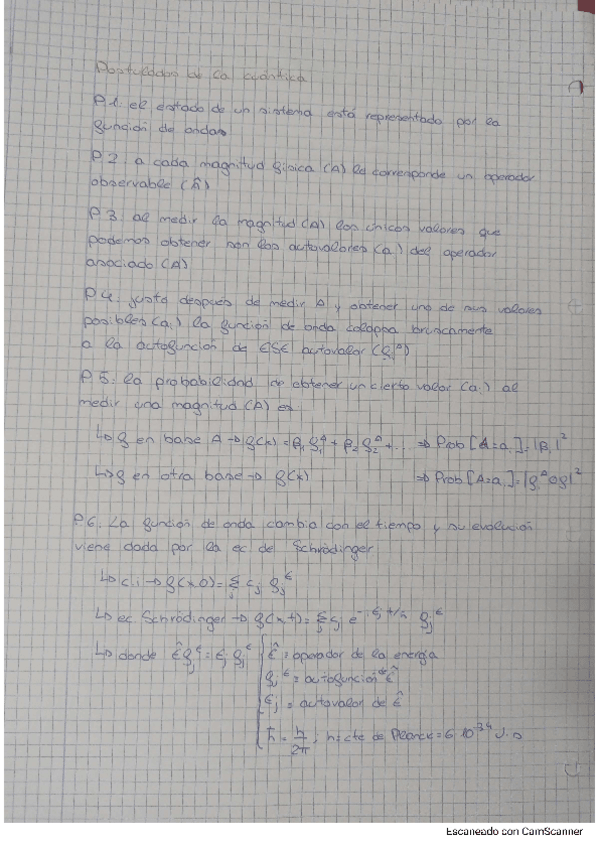 Postulados de la cuántica
P.1. el estado de un sistema está representado por la
función de ondas
P.2. a cada magnitud física (A) le corresponde un operador
observable (Â)
P.3 al medir la magnitud (A) los únicos valores que
podemos obtener son los autovalores (aᵢ) del operador
asociado (A)
P.4. justo después de medir A y obtener uno de sus valores
posibles (aᵢ) la función de onda colapsa bruscamente
a la autofunción de ESE autovalor (fᵢᴬ)
P.5. la probabilidad de obtener un cierto valor (aᵢ) al
medir una magnitud (A) es
↳ f en base A → f(x) = β₁f₁ᴬ + β₂f₂ᴬ + ... ⇒ Prob [A=aᵢ] = |βᵢ|²
↳ f en otra base → f(x) ⇒ Prob [A=aᵢ] = |fᴬ o f|²
P.6. La función de onda cambia con el tiempo y su evolución
viene dada por la ec. de Schrödinger
↳ c.i → f(x,0) = Σⱼ cⱼ fⱼᴱ
↳ ec. Schrödinger → f(x,t) = Σⱼ cⱼ e^(-iEⱼt/ħ) fⱼᴱ
↳ donde Êfⱼᴱ = Eⱼ fⱼᴱ
Ê = operador de la energía
fⱼᴱ = autofunción de Ê
Eⱼ = autovalor de Ê
ħ = h/2π ; h = cte de Planck = 6 10⁻³⁴ J·s
Escaneado con CamScanner